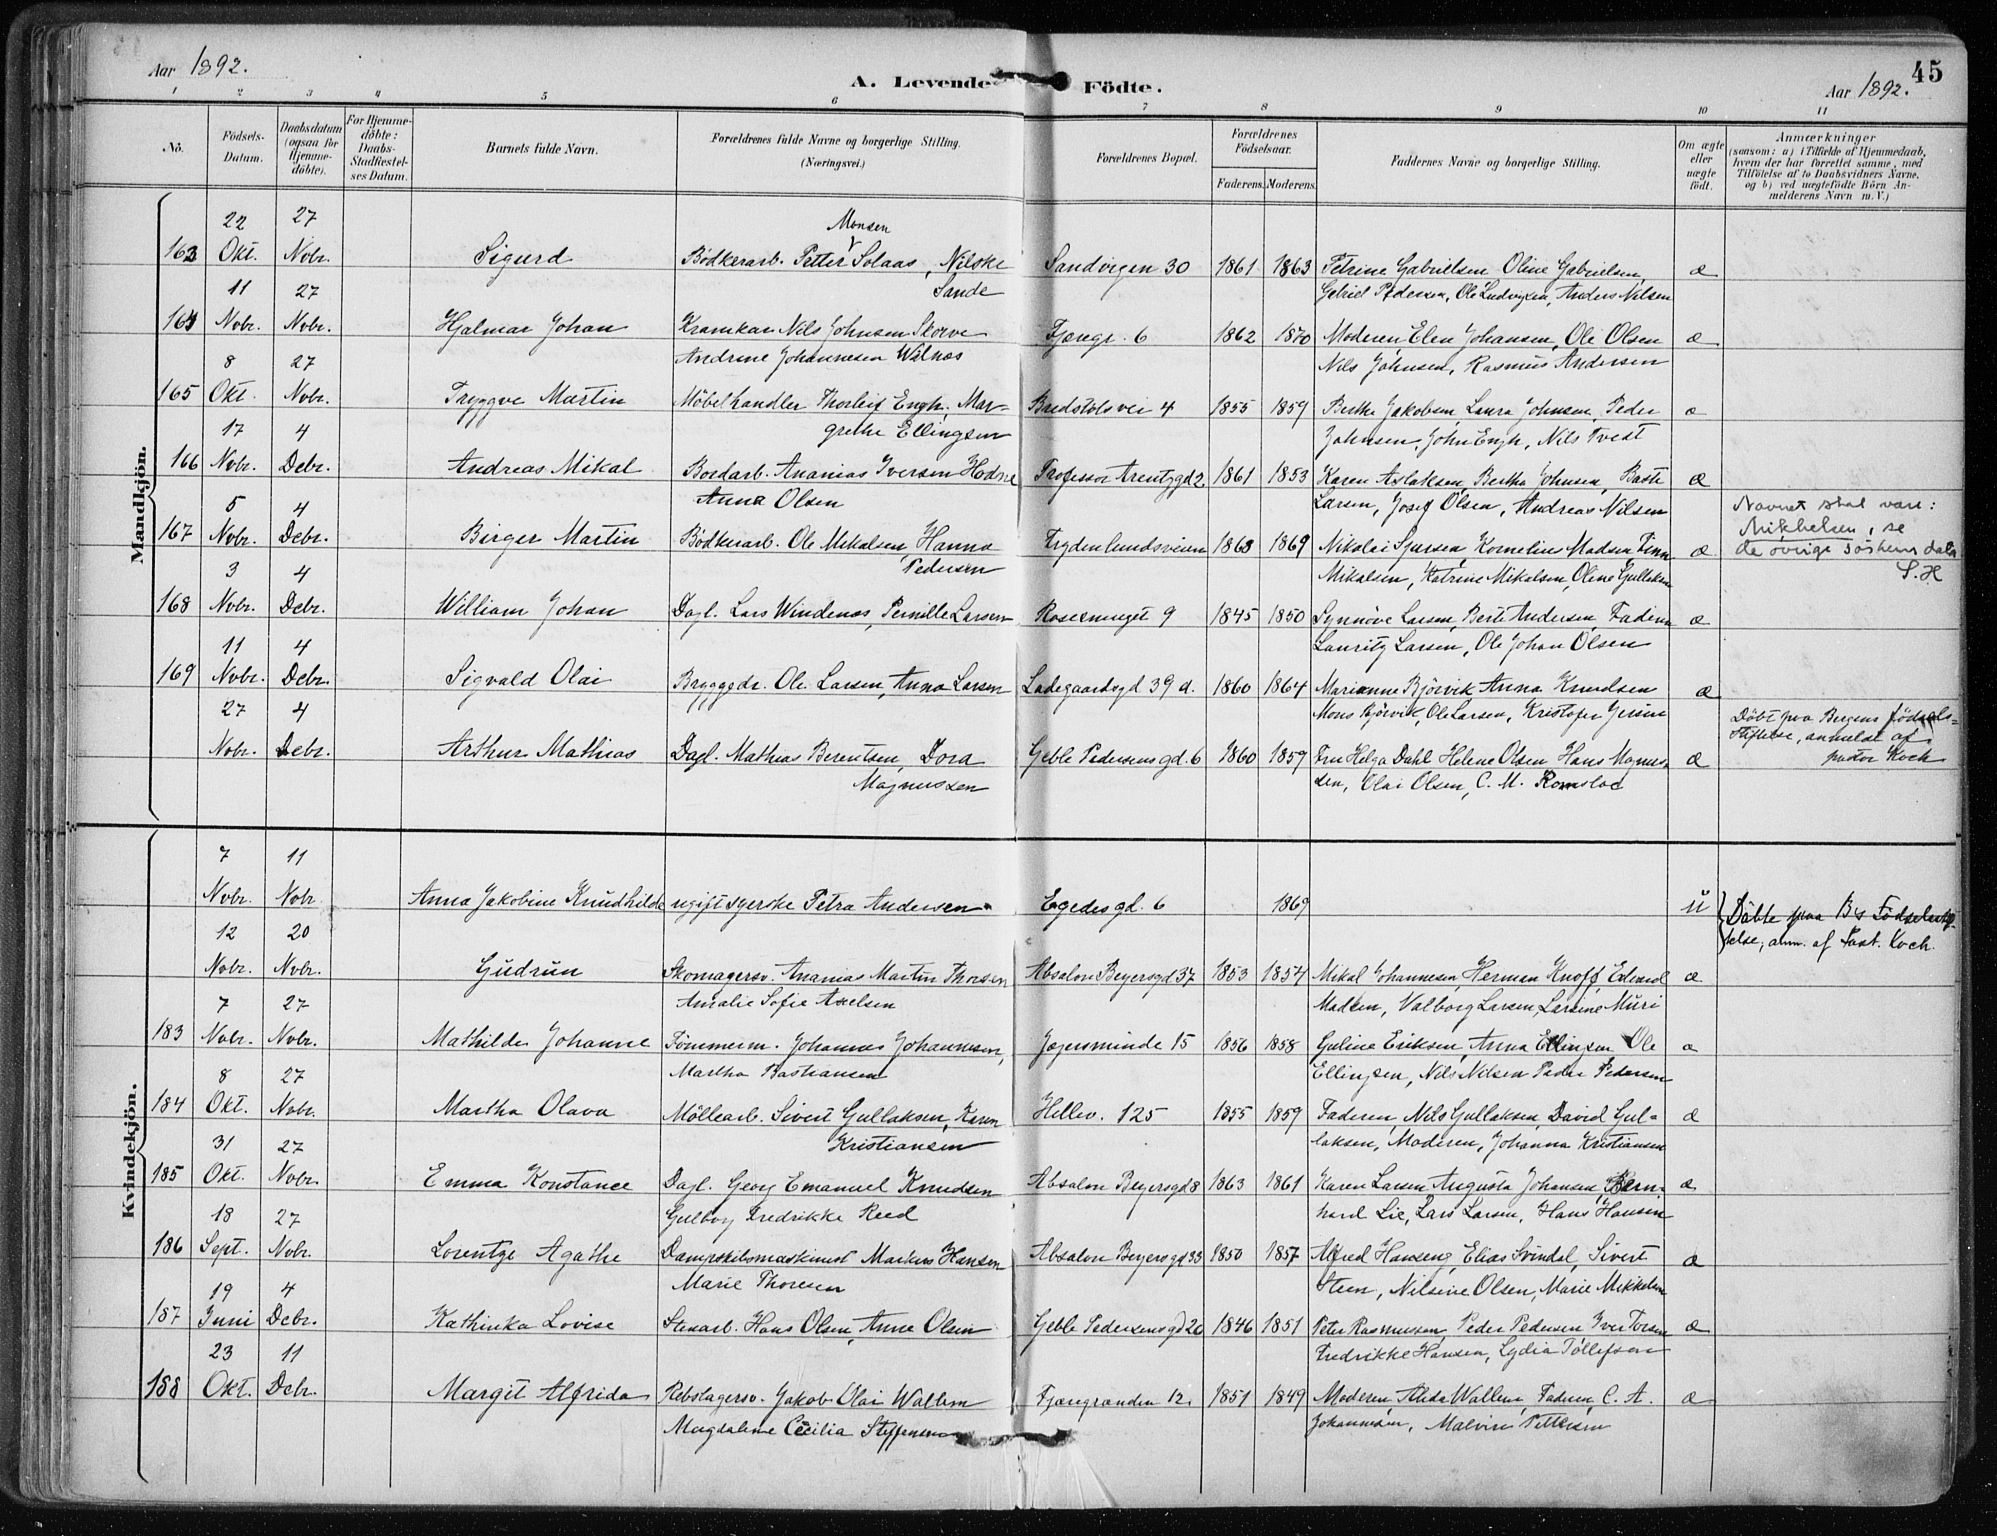 Aar 1892.
A. Levende Fødte.
Aar 1892.
45
1 2 3 4 5 6 7 8 9 10 11
No.
Födsels-Datum.
Daabsdatum (ogsaa for Hjemmedöbte).
For Hjemmedöbte: Daabs-Stadfæstelses Datum.
Barnets fulde Navn.
Forældrenes fulde Navne og borgerlige Stilling. (Næringsvei.)
Forældrenes Bopæl.
Forældrenes Födselsaar.
Faderens. Moderens.
Faddernes Navne og borgerlige Stilling.
Om ægte eller uægte født.
Anmærkninger
(saasom: a) i Tilfælde af Hjemmedaab,
hvem der har forrettet samme, med
Tilföielse af to Daabsvidners Navne.
og b) ved uægtefödte Börn An-
melderens Navn m. V.)
Mandkjön.
22 27 Monsen
163 Okt. Nobr. Sigurd Bødkerarb. Petter Solaas, Nilske Sandvigen 30 1861 1863 Petrine Gabrielsen Oline Gabrielsen, æ
11 27 Sande Gabriel Pedersen, Ole Ludvigsen, Anders Nilsen
164 Nobr. Nobr. Hjalmar Johan Kramkar Nils Johnsen Skorve Fjæregr. 6 1862 1870 Moderen Elen Johansen, Ole Olsen æ
8 27 Andrine Johannesen Wilnæs Nils Johnsen, Rasmus Andersen
165 Okt. Nobr. Tryggve Martin Möbelhandler Thorleif Engh. Mar- Bredstolsvei 4 1855 1859 Berthe Jakobsen, Laura Johnsen, Peder æ
17 4 grethe Ellingsen Johnsen, John Engh, Nils Tvedt
166 Nobr. Debr. Andreas Mikal Bordarb. Ananias Iversen Hodne Professor Arentzgd 2 1861 1853 Karen Aslaksen, Bertha Johnsen, Baste æ
5 4 Anna Olsen Larsen, Josef Olsen, Andreas Nilsen Navnet skal være:
167 Nobr. Debr. Birger Martin Bødkerarb. Ole Mikalsen, Hanna Frydenlundsveien 1863 1869 Nikolai Sjursen, Kornelius Madsen Finn æ Mikkelsen, se
3 4 Pedersen Mikalsen, Katrine Mikalsen, Oline Gullaksen de övrige
S.H
168 Nobr. Debr. William Johan Dagl. Lars Windenes, Pernille Larsen Rosesmuget 9 1845 1850 Synnøve Larsen, Berte Andersen, Faderen æ
11 4 Lauritz Larsen, Ole Johan Olsen
169 Nobr. Debr. Sigvald Olai Bryggedr. Ole Larsen, Anna Larsen Ladegaardsgd 39 d. 1860 1864 Marianne Bjørvik Anna Knudsen æ
27 4 Mons Bjørvik, Ole Larsen, Kristofer Jensen Döbt paa Bergens födsels-
Nobr. Debr. Arthur Mathias Dagl. Mathias Berentsen, Dora Geble Pedersens gd. 6 1860 1859 Fru Helga Dahl Helene Olsen Hans Magnus- æ stiftelse, anmelst af
Magnussen sen, Olai Olsen, C. M. Romslo pastor Koch
Kvindekjön.
7 11
Nobr. Nobr. Anna Jakobine Knudhilde ugift syerske Petra Andersen. Egedesgd. 6 1869 u Döbte paa Bs Födselsstif-
12 20 telse, anm. af Past. Koch.
Nobr. Nobr. Gudrun Skomagersv. Ananias Martin Thorsen Absalon Beyersgd 37 1853 1854 Mikal Johannesen, Herman Knoff, Edvard æ
7 27 Amalie Sofie Axelsen Madsen, Valborg Larsen, Larsine Muri
183 Nobr. Nobr. Mathilde Johanne Tömmerm. Johannes Johannesen, Jægersminde 15 1856 1858 Guline Eriksen, Anna Ellingsen Ole æ
8 27 Martha Bastiansen Ellingsen, Nils Nilsen Peder Pedersen
184 Okt. Nobr. Martha Olava Möllearb. Sivert Gullaksen, Karen Hellev. 125 1855 1859 Faderen, Nils Gullaksen, David Gul- æ
31 27 Kristiansen laksen, Moderen, Johanna Kristiansen
185 Okt. Nobr. Emma Konstance Dagl. Georg Emanuel Knudsen Absalon Beyersgd 8 1863 1861 Karen Larsen Augusta Johansen, Bern- æ
18 27 Gulborg Fredrikke Reed hard Lie, Lars Larsen, Hans Hansen
186 Sept. Nobr. Lorentze Agathe Dampskibsmaskinist Markus Hansen Absalon Beyersgd 33 1850 1857 Alfred Hansen, Elias Svindal, Sivert æ
19 4 Marie Thoresen Steen, Nilsine Olsen, Marie Mikkelsen
187 Juni Debr. Kathinka Lovise Stenarb. Hans Olsen, Anne Olsen Geble Pedersensgd 26 1846 1851 Peter Rasmussen, Peder Pedersen Iver Torsen æ
23 11 Fredrikke Hansen, Lydia Tollefsen
188 Okt. Debr. Margit Alfrida Rebslagersv. Jakob Olai Wallem Fjæregranden 12. 1851 1849 Moderen, Alida Wallem, Faderen, C. A. æ
Magdalene Cecilia Steffensen Johannesen, Malvin Pettersen